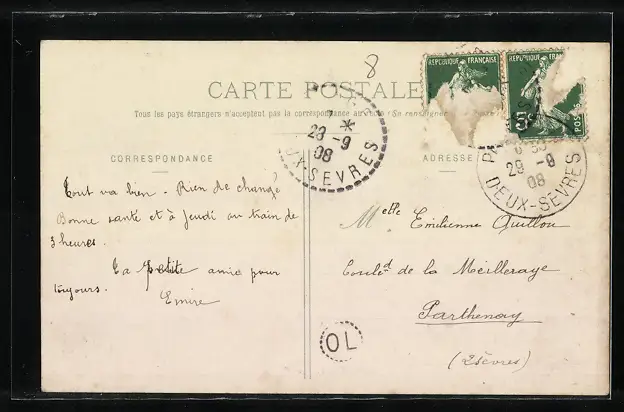 8
CARTE POSTALE
Tous les pays étrangers n'acceptent pas la correspondance au recto (Se renseigner
REPUBLIQUE FRANÇAISE
REPUBLIQUE FRAN
5c
POSTES
7 *
28 -9
08
UX-SEVRES
P
29 -9
08
DEUX-SEVRES
CORRESPONDANCE
ADRESSE
Tout va bien. Rien de changé
Bonne santé et à Jeudi au train de
3 heures.
Ta petite amie pour
toujours.
Emire
Melle Emilienne Quillou
Bouled de la Meilleraye
Parthenay
(2 Sèvres)
OL